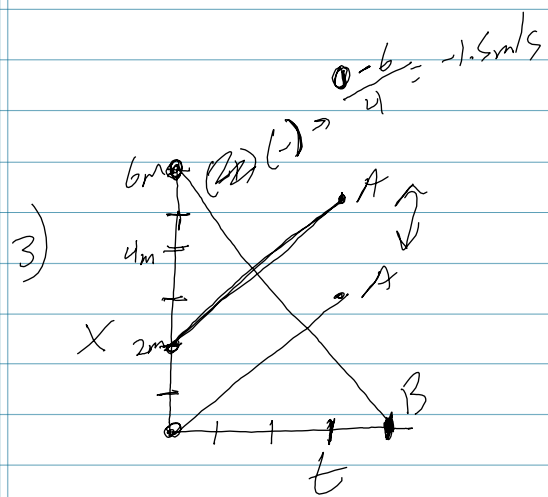 0-6/4 = -1.5m/s
6m (-) →
A
3)
4m
A
X 2m
B
t